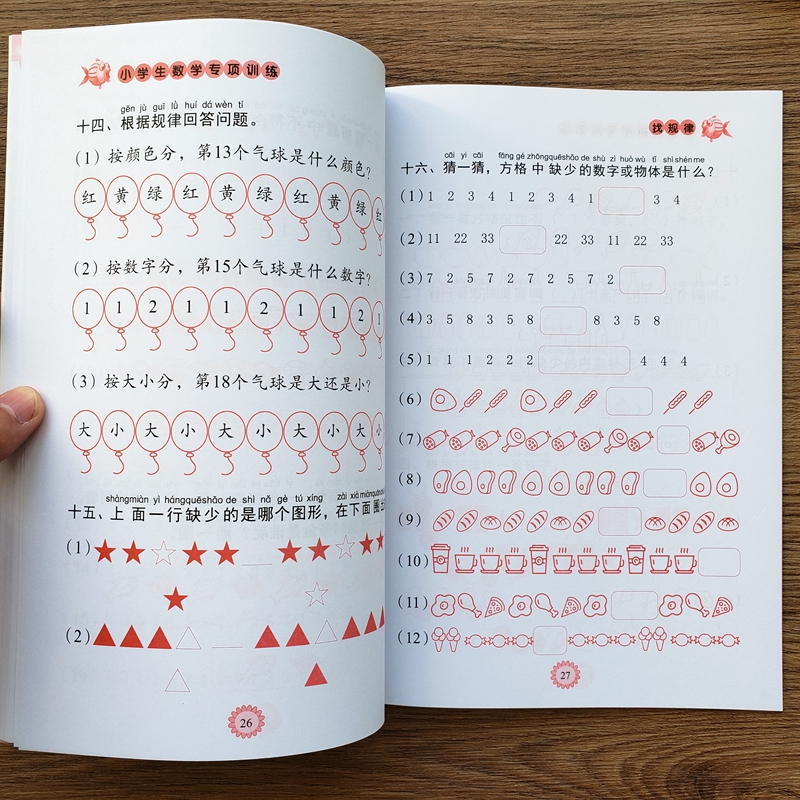 小学生数学专项训练
gēn jù guī lǜ huí dá wèn tí
十四、根据规律回答问题。
(1) 按颜色分，第13个气球是什么颜色？
红 黄 绿 红 黄 绿 红 黄 绿 红
(2) 按数字分，第15个气球是什么数字？
1 1 2 1 1 2 1 1 2 1
(3) 按大小分，第18个气球是大还是小？
大 小 大 小 大 小 大 小 大 小
shàngmiàn yì hángquēshǎo de shì nǎ gè tú xíng zài xià miàn
十五、上面一行缺少的是哪个图形，在下面圈出
(1)
(2)
26
找规律
cāi yi cāi fāng gé zhōngquēshǎo de shù zì huò wù tǐ shì shén me
十六、猜一猜，方格中缺少的数字或物体是什么？
(1) 1 2 3 4 1 2 3 4 1 3 4
(2) 11 22 33 22 33 11 22 33
(3) 7 2 5 7 2 7 2 5 7 2
(4) 3 5 8 3 5 8 8 3 5 8
(5) 1 1 1 2 2 2 4 4 4
(6)
(7)
(8)
(9)
(10)
(11)
(12)
27